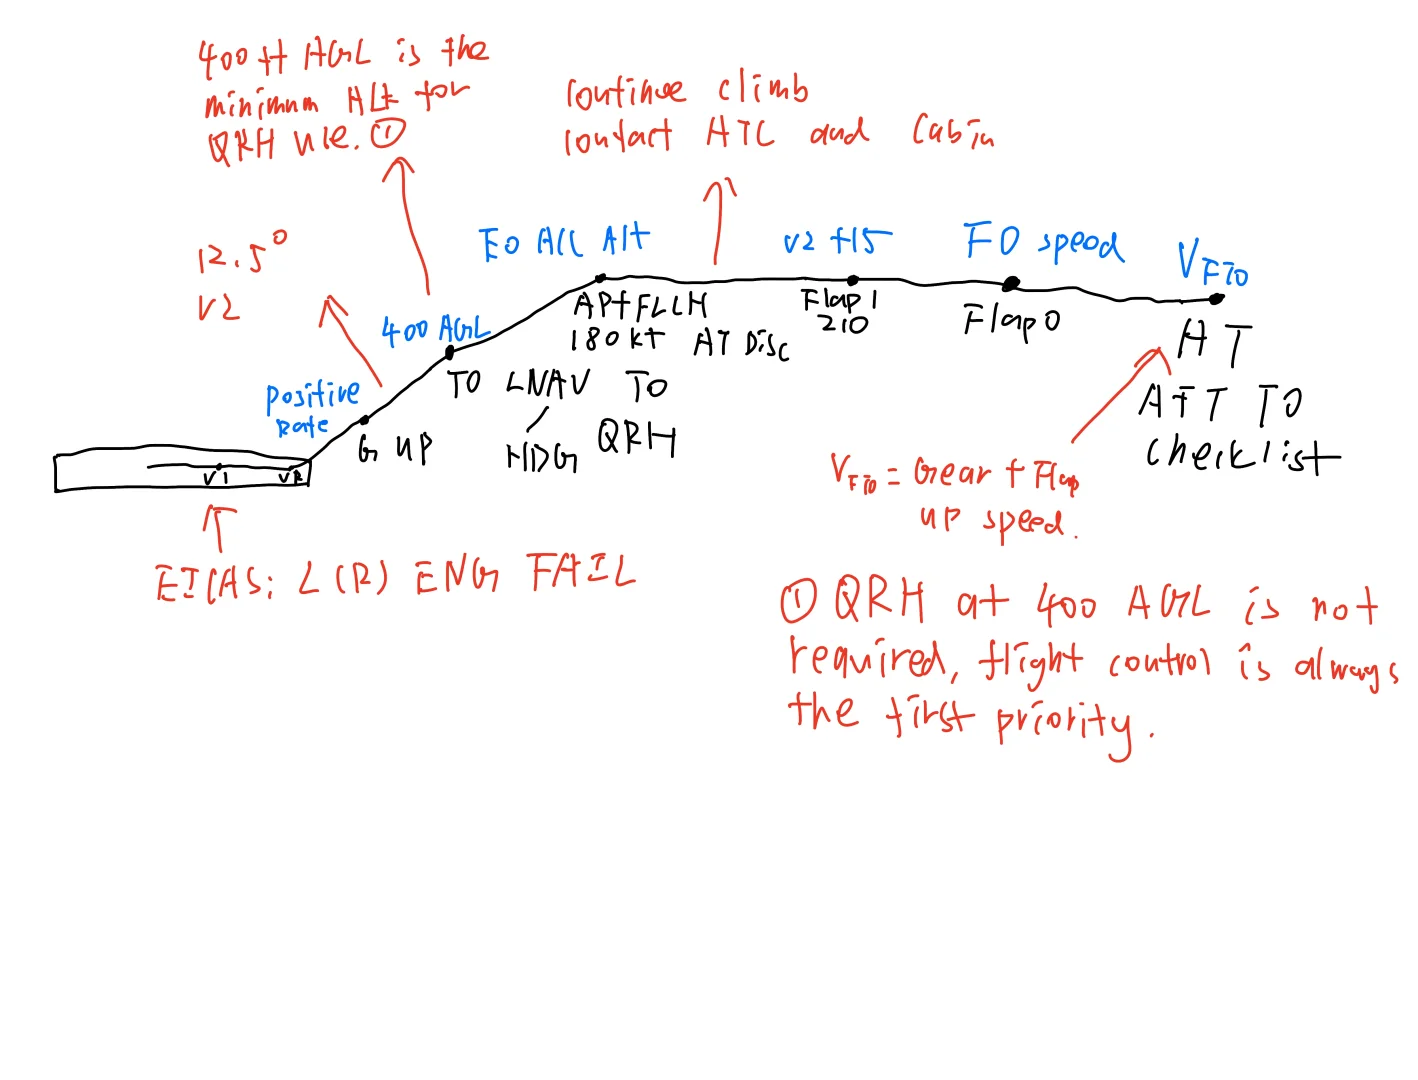 400 ft AGL is the
minimum Alt for
QRH use. ①
continue climb
contact ATC and Cabin
12.5°
V2
EO ACC Alt
V2 +15
F0 speed
VFTO
400 AGL
AP+FLCH
180 kt
AT Disc
Flap 1
210
Flap 0
AT
AFT TO
checklist
positive
Rate
G UP
TO LNAV TO
HDG
QRH
V1
VR
VFTO = Gear + Flap
UP speed.
EICAS: L(R) ENG FAIL
① QRH at 400 AGL is not
required, flight control is always
the first priority.